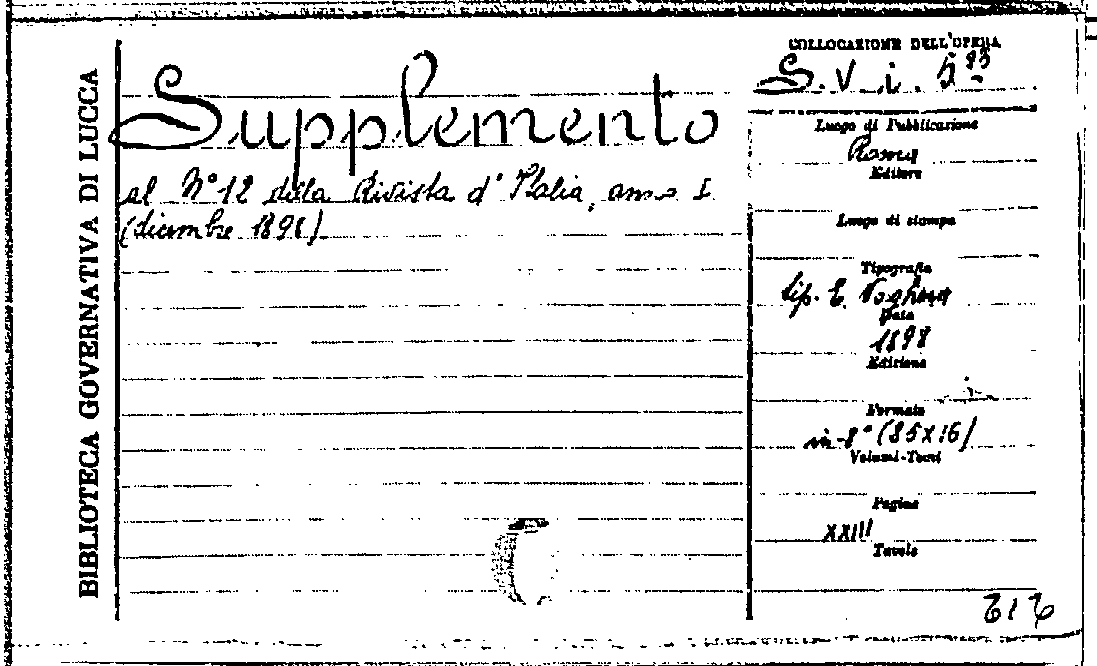 BIBLIOTECA GOVERNATIVA DI LUCCA
Supplemento
al N° 12 della Rivista d'Italia, anno I
(dicembre 1898)
COLLOCAZIONE DELL'OPERA
S. V. i. 5
Luogo di Pubblicazione
Roma
Editore
Luogo di stampa
Tipografia
tip. E. Voghera
Data
1898
Edizione
Formato
in-8° (85x16)
Volumi-Tomi
Pagine
XXIII
Tavole